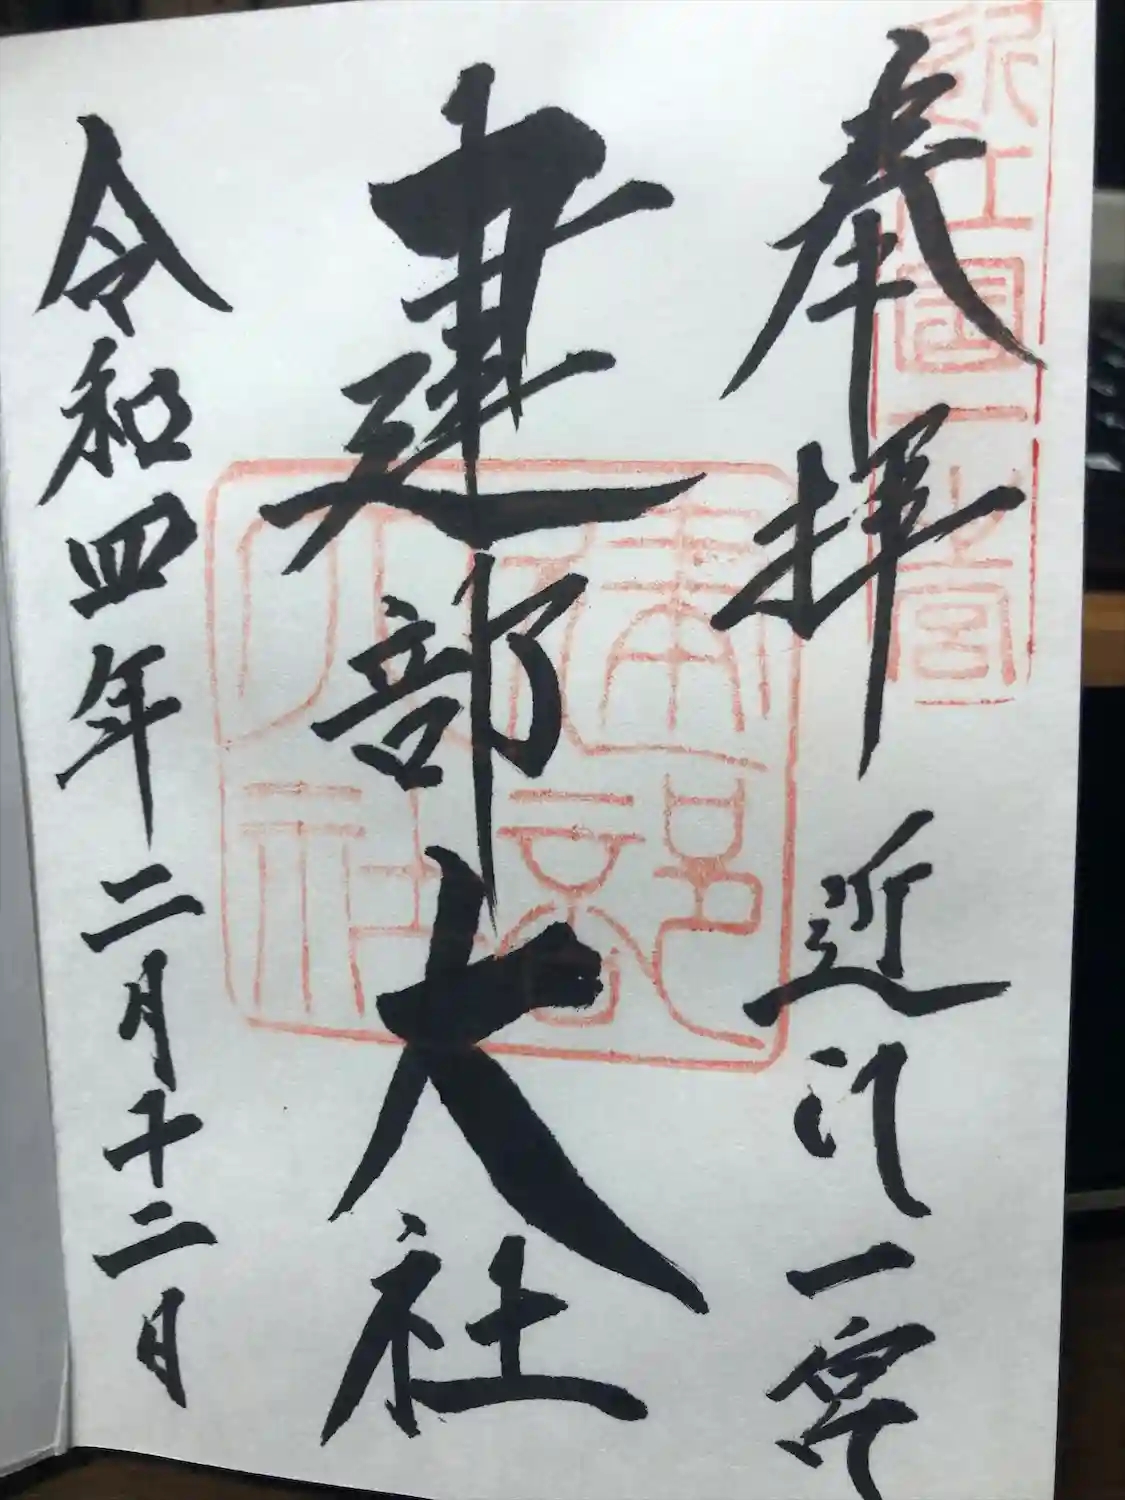 奉拝 近江一宮
近江國一之宮
建部大社
建部大社
令和四年二月十二日